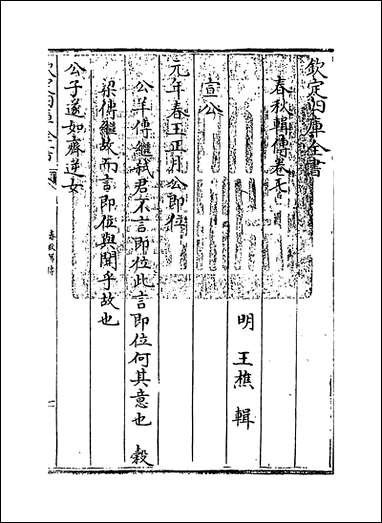 欽定四庫全書
春秋輯傳卷七
明 王樵 輯
宣公
元年春王正月公即位
公羊傳繼弑君不言即位此言即位何其意也 穀
梁傳繼故而言即位與聞乎故也
公子遂如齊逆女
欽定四庫全書
春秋輯傳
一